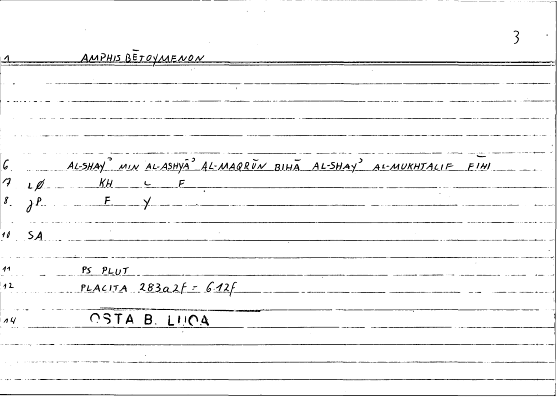 3
1 AMPHISBĒTOYMENON
6 AL-SHAYʾ MIN AL-ASHYĀʾ AL-MAQRŪN BIHĀ AL-SHAYʾ AL-MUKHTALIF FĪHI
7 LØ KH L F
8. JP F Y
10 SA
11 PS PLUT
12 PLACITA 283a2f = 6.12f
14 QSTA B. LUQA